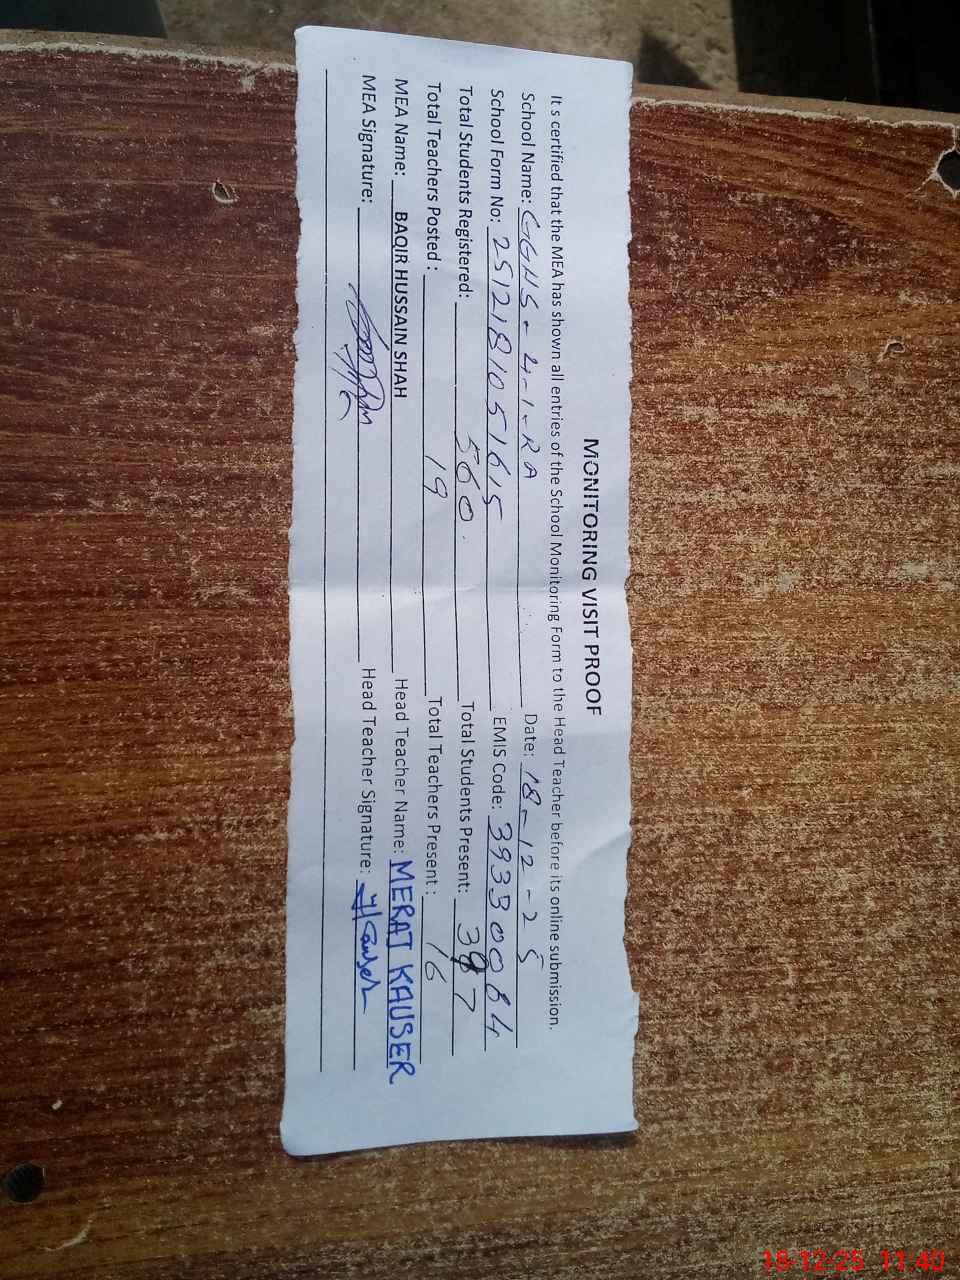 MONITORING VISIT PROOF
It s certified that the MEA has shown all entries of the School Monitoring Form to the Head Teacher before its online submission.
School Name: GGHS - 4-1-RA Date: 18-12-25
School Form No: 2512181051615 EMIS Code: 39330084
Total Students Registered: 560. Total Students Present: 397
Total Teachers Posted: 19 Total Teachers Present: 16
MEA Name: BAQIR HUSSAIN SHAH Head Teacher Name: MERAJ KAUSER
MEA Signature: Head Teacher Signature: Kauser
18-12-25 11:40